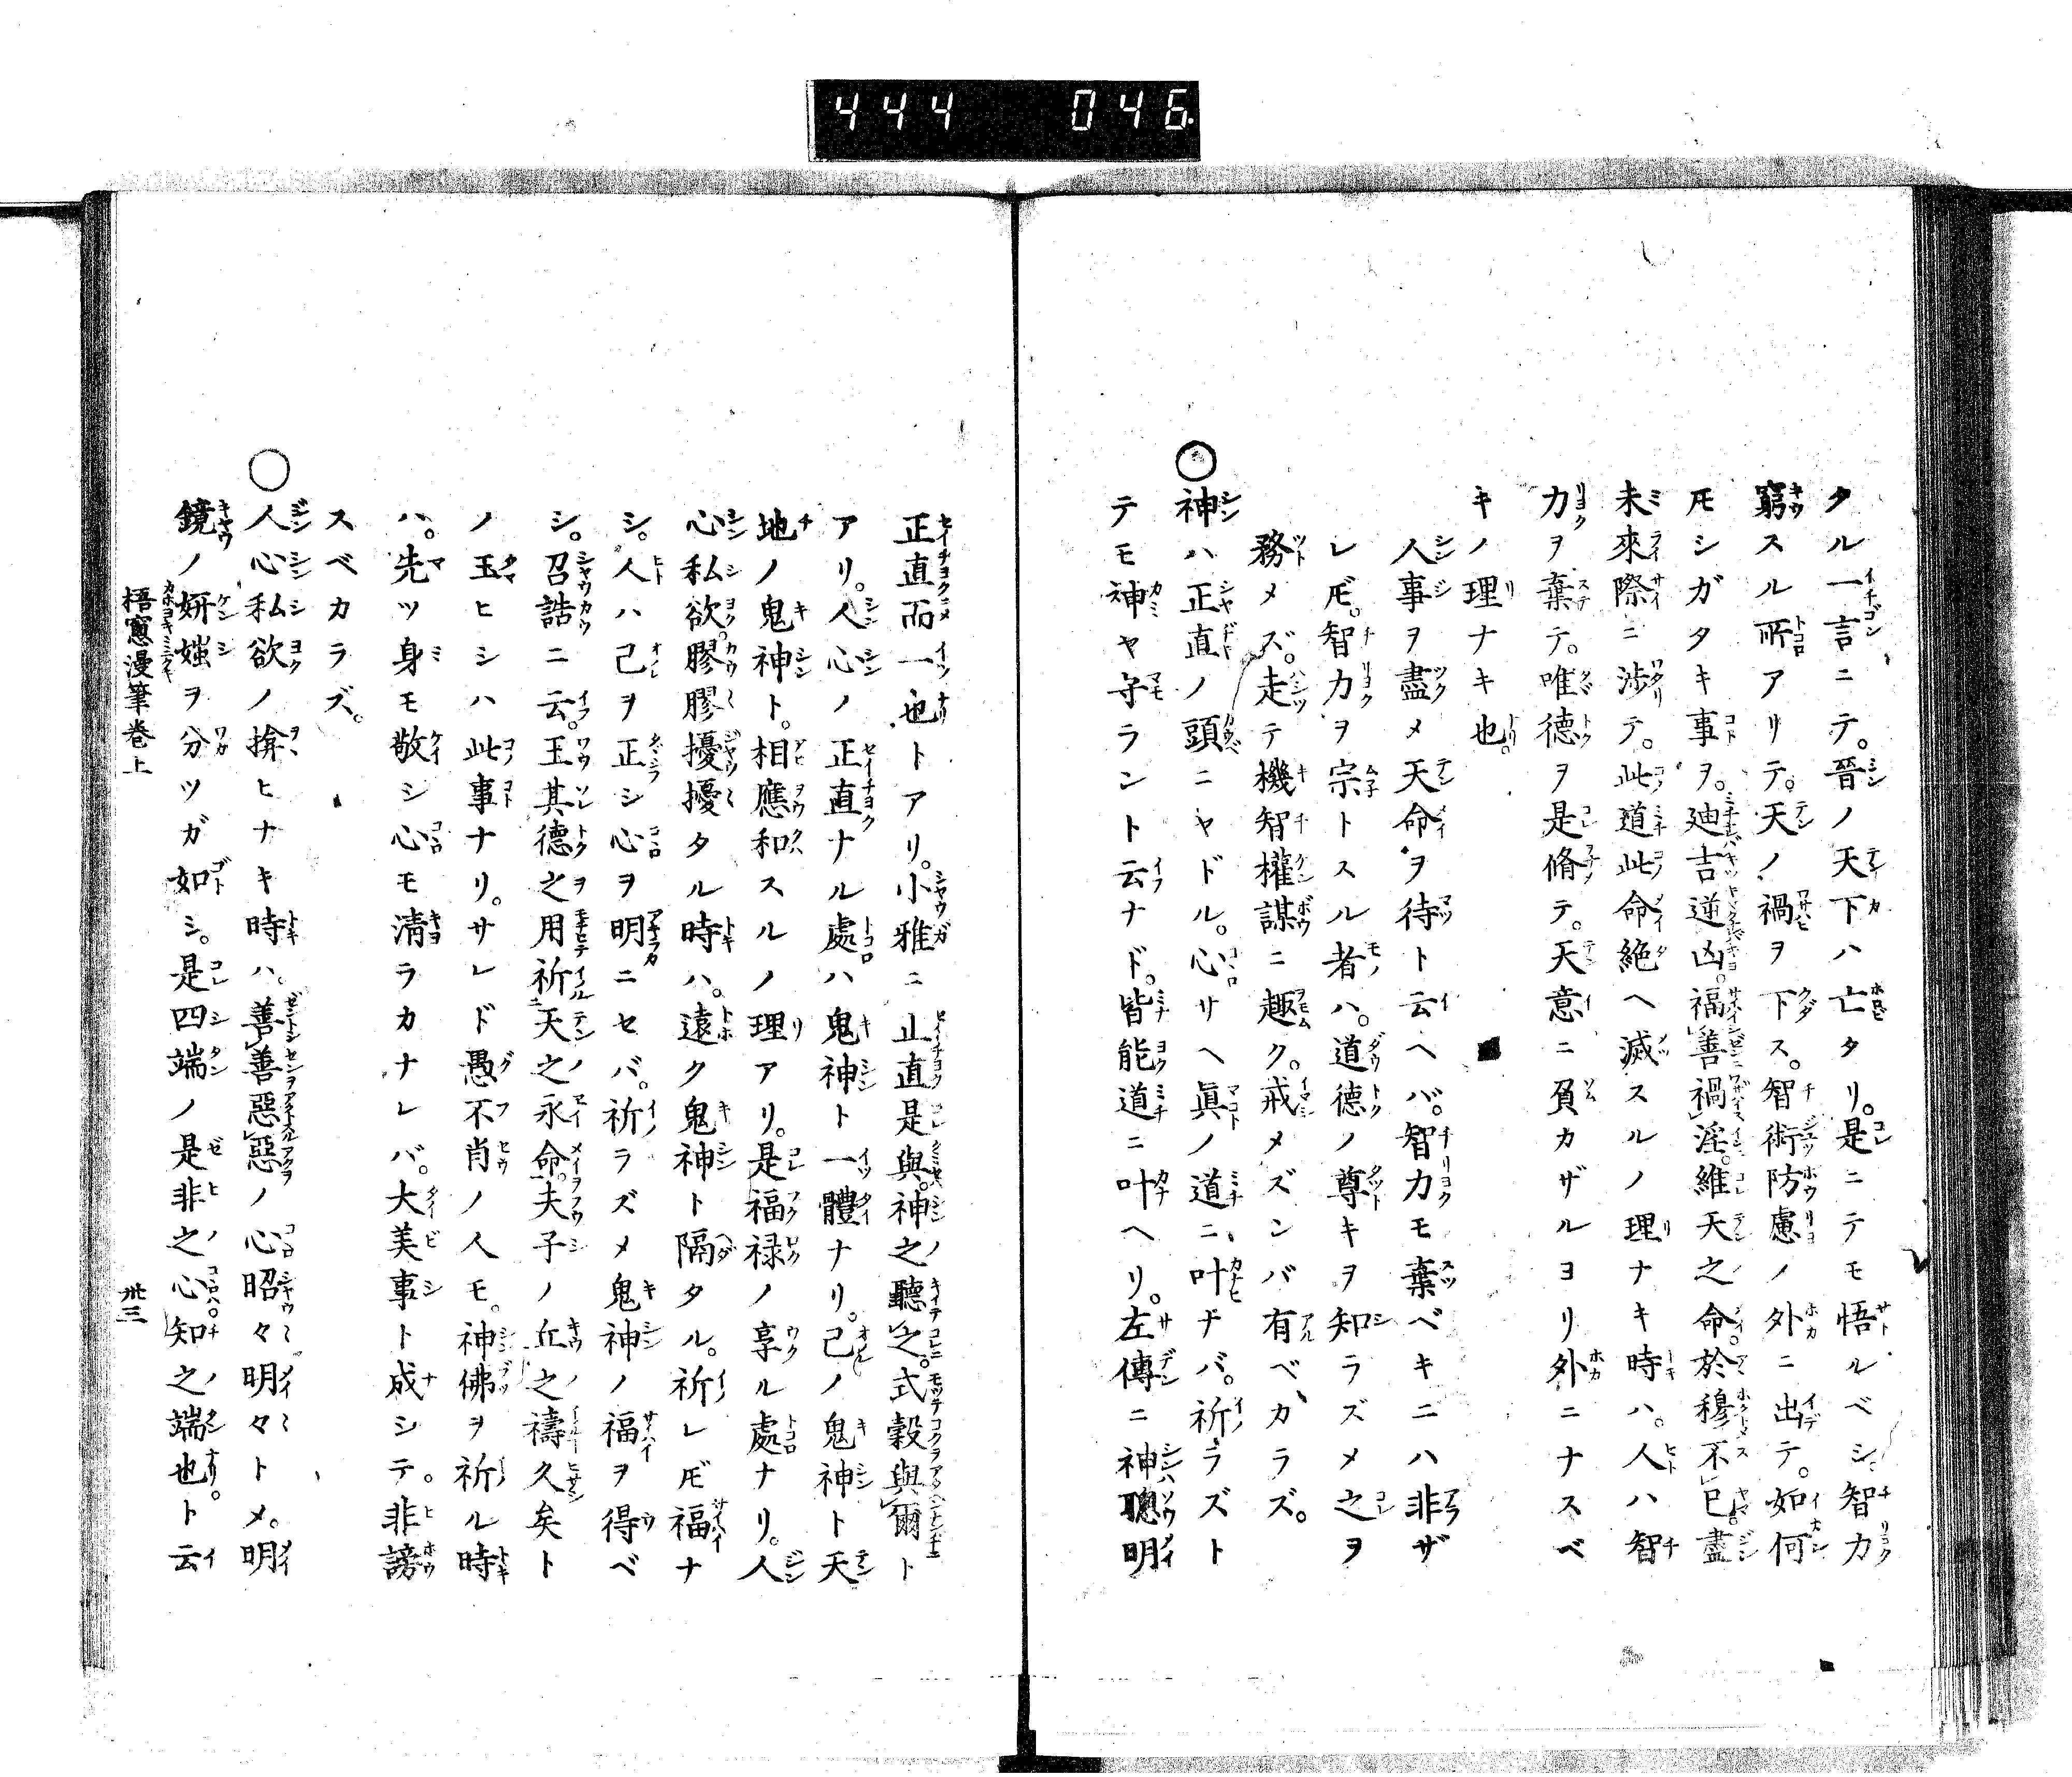 444 046
タル一言ニテ。晉ノ天下ハ亡タリ。是ニテモ悟ルベシ。智力
窮スル所アリテ。天ノ禍ヲ下ス。智術防慮ノ外ニ出テ。如何
𪜈シガタキ事ヲ。迪吉逆凶。福善禍淫。維天之命。於穆不已。盡
未來際ニ渉テ。此道此命絶ヘ滅スルノ理ナキ時ハ。人ハ智
力ヲ棄テ。唯德ヲ是脩テ。天意ニ負カザルヨリ外ニナスベ
キノ理ナキ也。
人事ヲ盡メ天命ヲ待ト云ヘバ。智力モ棄ベキニハ非ザ
レ𪜈。智力ヲ宗トスル者ハ。道德ノ尊キヲ知ラズメ之ヲ
務メズ。走テ機智權謀ニ趣ク。戒メズンバ有ベカラズ。
○神ハ正直ノ頭ニヤドル。心サヘ眞ノ道ニ叶ナバ。祈ラズト
テモ神ヤ守ラント云ナド。皆能道ニ叶ヘリ。左傳ニ神聰明
正直而一也トアリ。小雅ニ正直是與。神之聽之。式穀與爾ト
アリ。人心ノ正直ナル處ハ鬼神ト一體ナリ。己ノ鬼神ト天
地ノ鬼神ト。相應和スルノ理アリ。是福禄ノ享ル處ナリ。人
心私欲。膠膠擾擾タル時ハ。遠ク鬼神ト隔タル。祈レ𪜈福ナ
シ。人ハ己ヲ正シ心ヲ明ニセバ。祈ラズメ鬼神ノ福ヲ得ベ
シ。召誥ニ云。王其德之用祈天之永命。夫子ノ丘之禱久矣ト
ノ玉ヒシハ此事ナリ。サレド愚不肖ノ人モ。神佛ヲ祈ル時
ハ。先ツ身モ敬シ心モ清ラカナレバ。大美事ト成シテ。非謗
スベカラズ。
○人心私欲ノ揜ヒナキ時ハ。善善惡惡ノ心昭々明々トメ。明
鏡ノ妍媸ヲ分ツガ如シ。是四端ノ是非之心知之端也。ト云
梧窻漫筆巻上 卅三